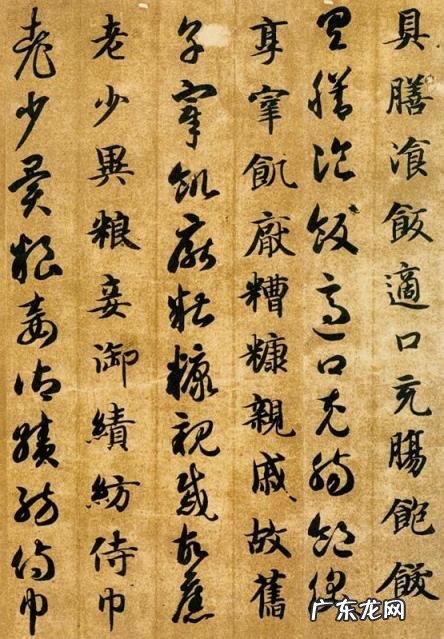 具膳飡飯適口充腸飽飫
具膳飡飯適口充腸飽飫
享宰飢厭糟糠親戚故舊
享宰飢厭糟糠親戚故舊
老少異粮妾御績紡侍巾
老少異粮妾御績紡侍巾
广东龙网